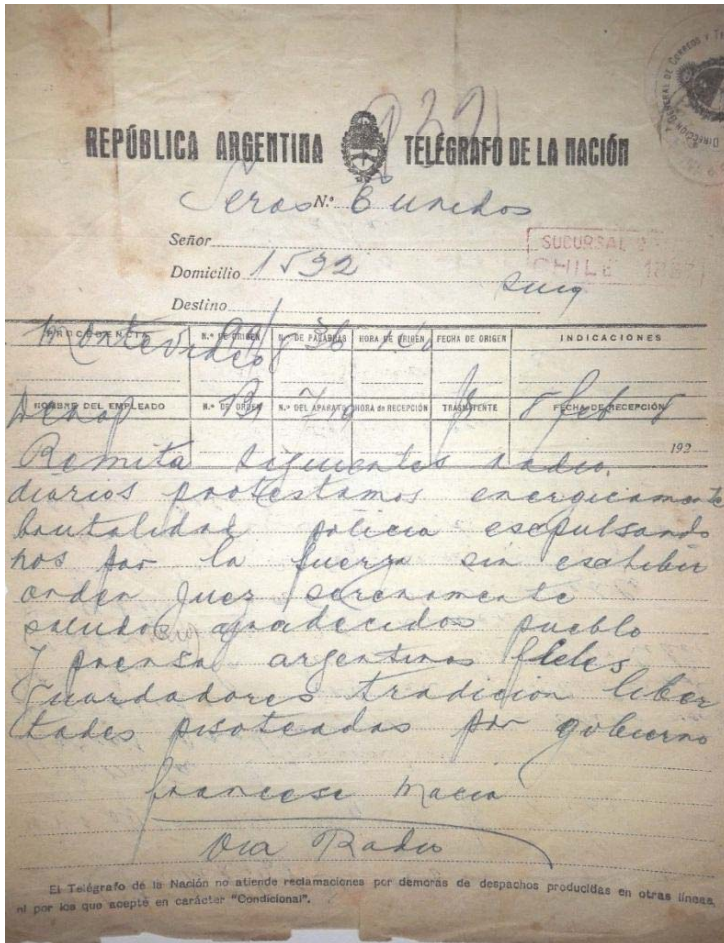 REPÚBLICA ARGENTINA TELÉGRAFO DE LA NACIÓN
Seras N.º E unidos
Señor
SUCURSAL 2
CHILE
Domicilio 1592
Destino
PROCEDENCIA N.º DE ORIGEN N.º DE PALABRAS HORA DE ORIGEN FECHA DE ORIGEN INDICACIONES
Montevideo 36
NOMBRE DEL EMPLEADO N.º DE ORDEN N.º DEL APARATO HORA de RECEPCIÓN TRASMITENTE FECHA DE RECEPCIÓN
8 feb 8
192
Remita siguientes radio
diarios protestamos energicamente
brutalidad policia esepulsando
nos por la fuerza sin exhibir
orden juez serenamente
saludos agradecidos pueblo
y prensa argentinos fieles
guardadores tradicion liber
tades pisoteadas por gobierno
francesc Macia
Via Radio
El Telégrafo de la Nación no atiende reclamaciones por demoras de despachos producidas en otras líneas,
ni por los que acepté en carácter "Condicional".